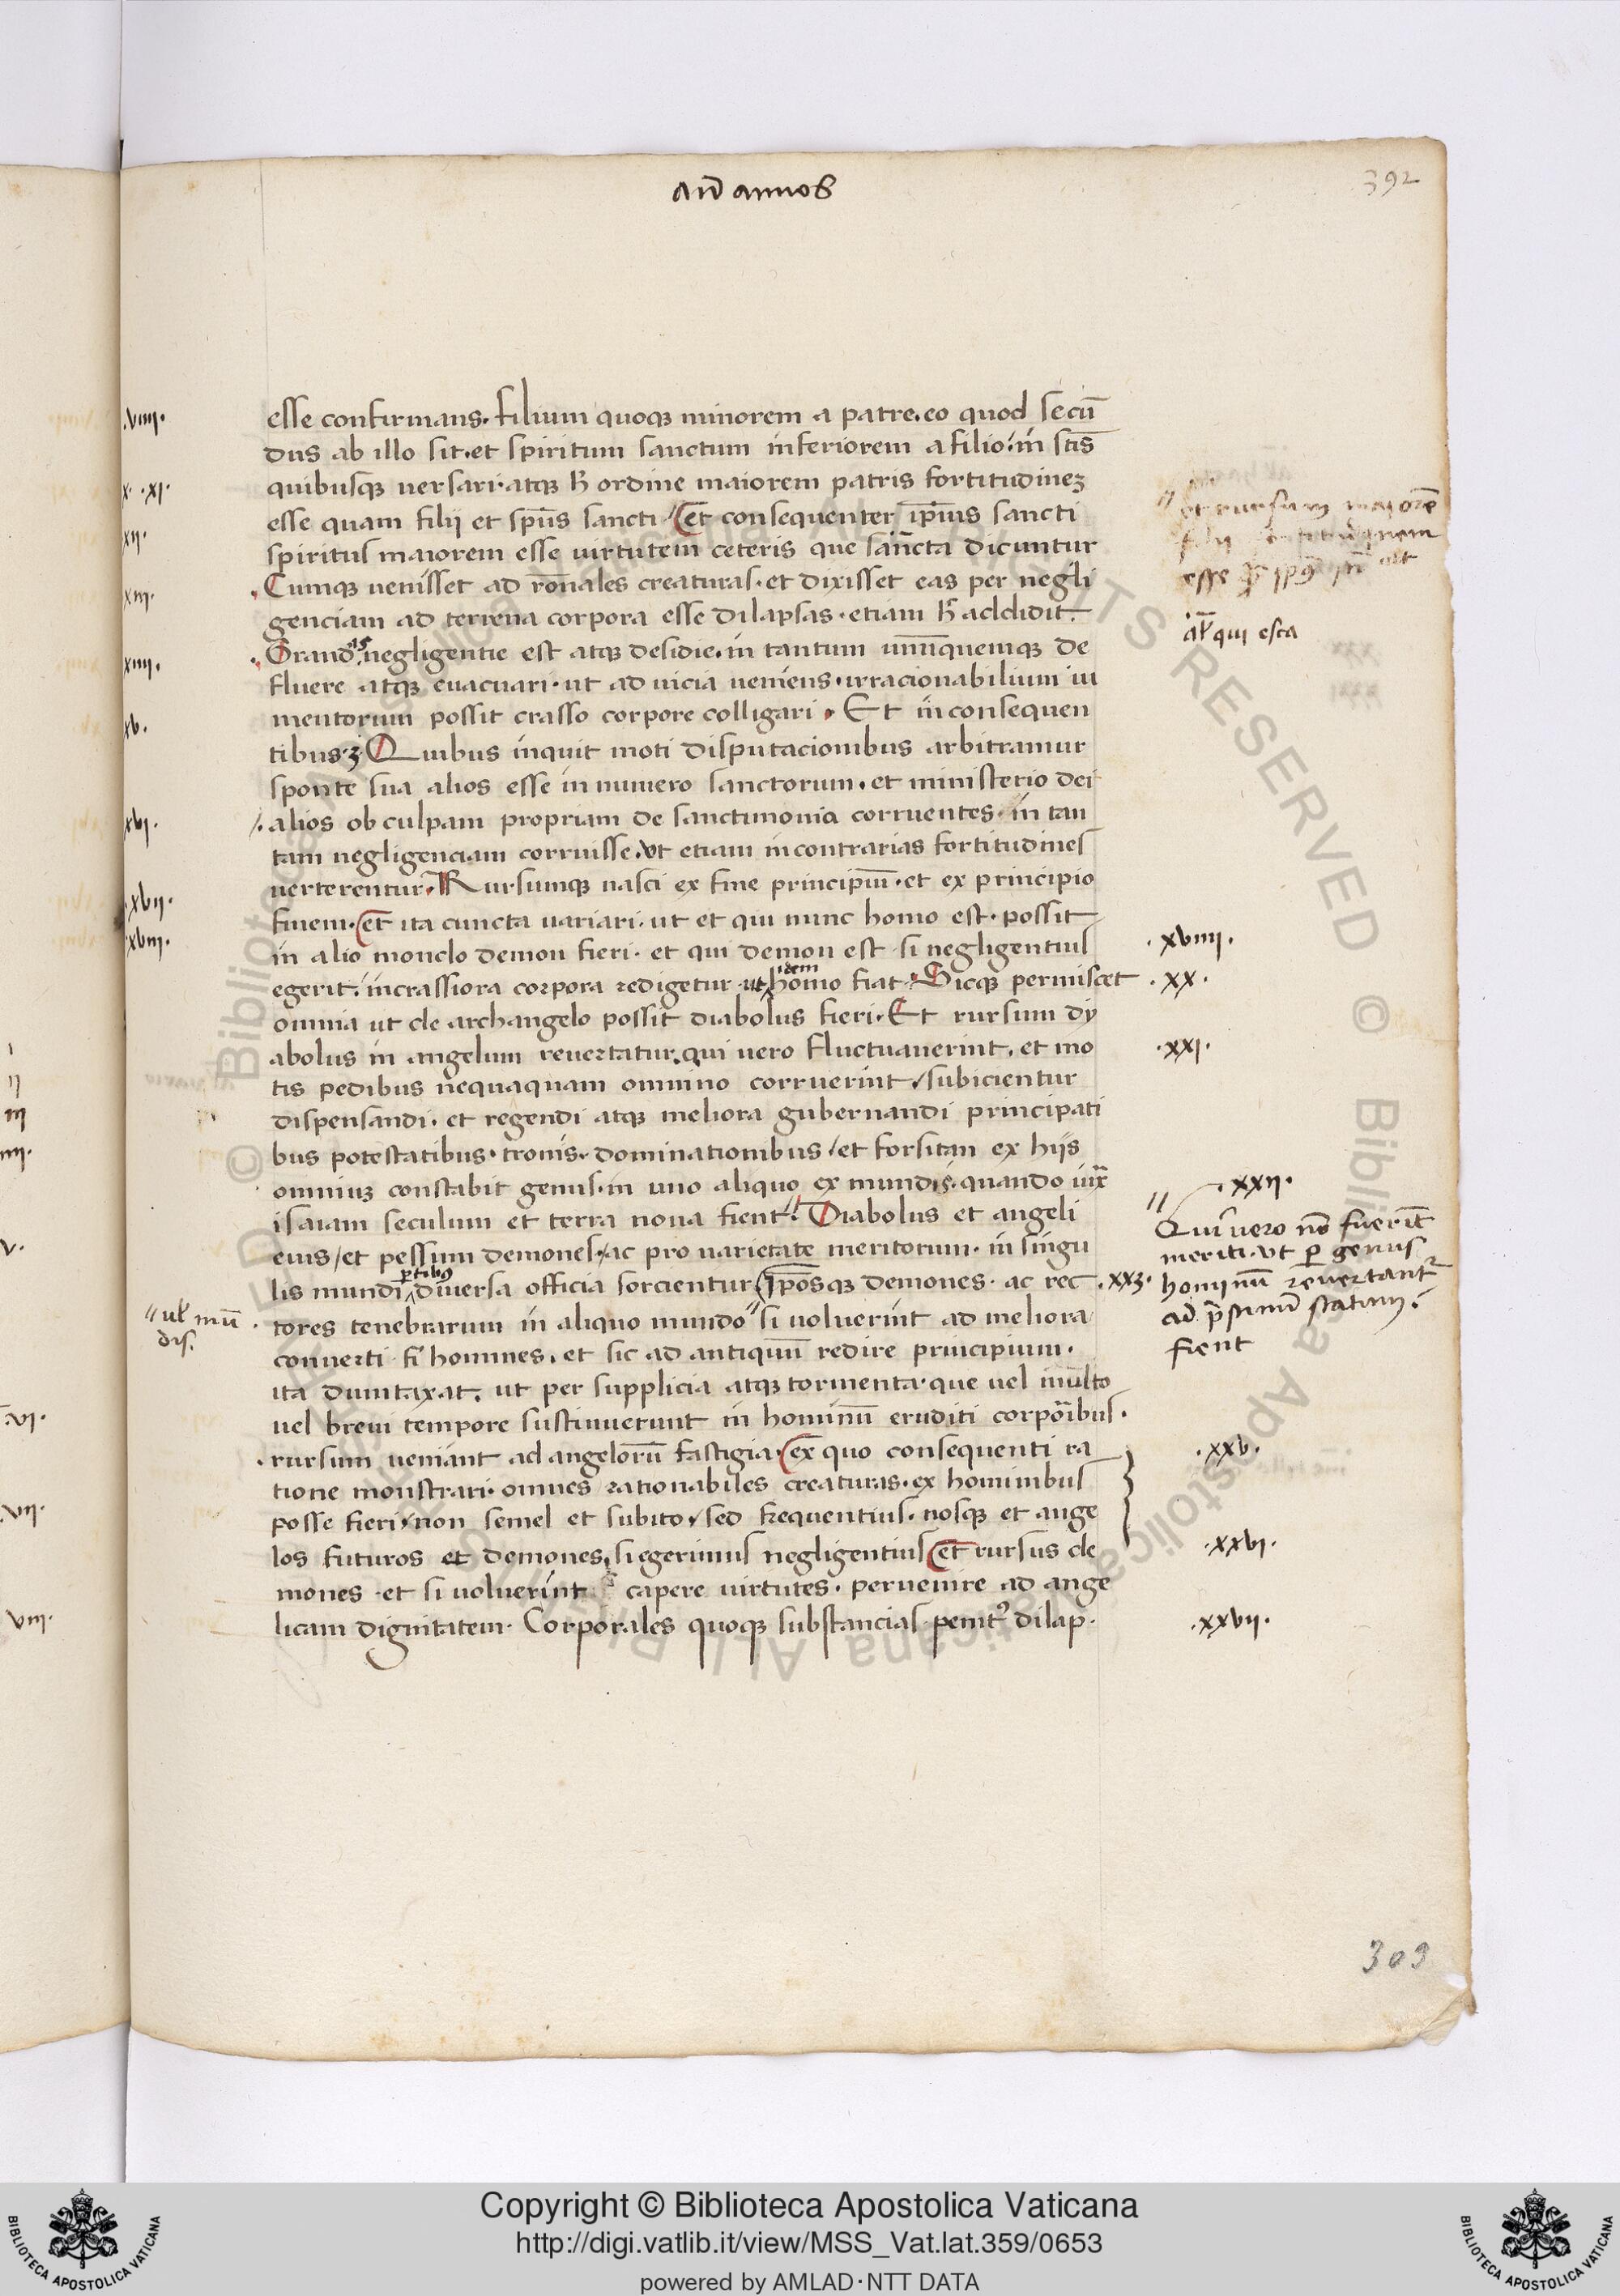 an̄ annos
392
esse confirmans. filium quoqꝫ minorem a patre. eo quod secū
dus ab illo sit. et spiritum sanctum inferiorem a filio. in scīs
quibusqꝫ uersari. atqꝫ h̄ ordine maiorem patris fortitudineꝫ
esse quam filij et spūs sancti / et consequenter ip̄ius sancti
spiritus maiorem esse uirtutem ceteris que sancta dicuntur
Cumqꝫ uenisset ad rōnales creaturas. et dixisset eas per negli
genciam ad terrena corpora esse dilapsas. etiam h̄ addidit.
Grandis negligentie est atqꝫ desidie. in tantum unūquemqꝫ de
fluere atqꝫ euacuari. ut ad uicia ueniens. irracionabilium iu
mentorum possit crasso corpore colligari. Et in consequen
tibus. Quibus inquit moti disputacionibus arbitramur
sponte sua alios esse in numero sanctorum. et ministerio dei
alios ob culpam propriam de sanctimonia corruentes. in tan
tam negligenciam corruisse. ut etiam in contrarias fortitudines
uerterentur. Rursumqꝫ nasci ex fine principiū. et ex principio
finem. et ita cuncta uariari. ut et qui nunc homo est. possit
in alio mondo demon fieri. et qui demon est. si negligentius
egerit. in crassiora corpora redigetur. ut idem homo fiat. Sicqꝫ permiscet
omnia ut de archangelo possit diabolus fieri. Et rursum dy
abolus in angelum reuertatur. qui uero fluctuauerint. et mo
tis pedibus nequaquam omnino corruerint / subicientur
dispensandi. et regendi atqꝫ meliora gubernandi principati
bus potestatibus. tronis. dominationibus / et forsitan ex hijs
omniuꝫ constabit genus. in uno aliquo ex mundis. quando iux̄
isaiam seculum et terra noua fient. Diabolus et angeli
eius / et pessimi demones / ac pro uarietate meritorum. in singu
lis mundi ꝑtibus diuersa officia sorcientur. ip̄osqꝫ demones. ac rec
tores tenebrarum in aliquo mundo // si uoluerint ad meliora
conuerti. homines. et sic ad antiquū redire principium.
ita dumtaxat. ut per supplicia atqꝫ tormenta. que uel multo
uel breui tempore sustinuerunt in hominū eruditi corpōibus.
rursum ueniant ad angelorū fastigia. ex quo consequenti ra
tione monstrari. omnes rationabiles creaturas. ex hominibus
posse fieri / non semel et subito / sed frequentius. nosqꝫ et ange
los futuros et demones. si egerimus negligentius et rursus de
mones. et si uoluerint capere uirtutes. peruenire ad ange
licam dignitatem. Corporales quoqꝫ substancias penitꝰ dilap.
.viiii.
x. .xi.
xii.
xiii.
xiiii.
xv.
xvi.
.xvii.
xviii.
// ul̄ mū
dis.
// et rursum maiorē
filij fortitudinem
esse
al̄ qui esca
.xviiii.
.xx.
.xxi.
.xxii.
// Qui uero nō fuerīt
meriti. ut ꝑ genus
hominū reuertantr
ad p̄stinū statum.
fient
.xx3.
.xxv.
.xxvi.
.xxvii.
i
ii
iii
iiii.
v.
.vi.
.vii.
viii.
303
© Biblioteca Apostolica Vaticana ALL RIGHTS RESERVED
Copyright © Biblioteca Apostolica Vaticana
http://digi.vatlib.it/view/MSS_Vat.lat.359/0653
powered by AMLAD·NTT DATA
BIBLIOTECA APOSTOLICA VATICANA
BIBLIOTECA APOSTOLICA VATICANA